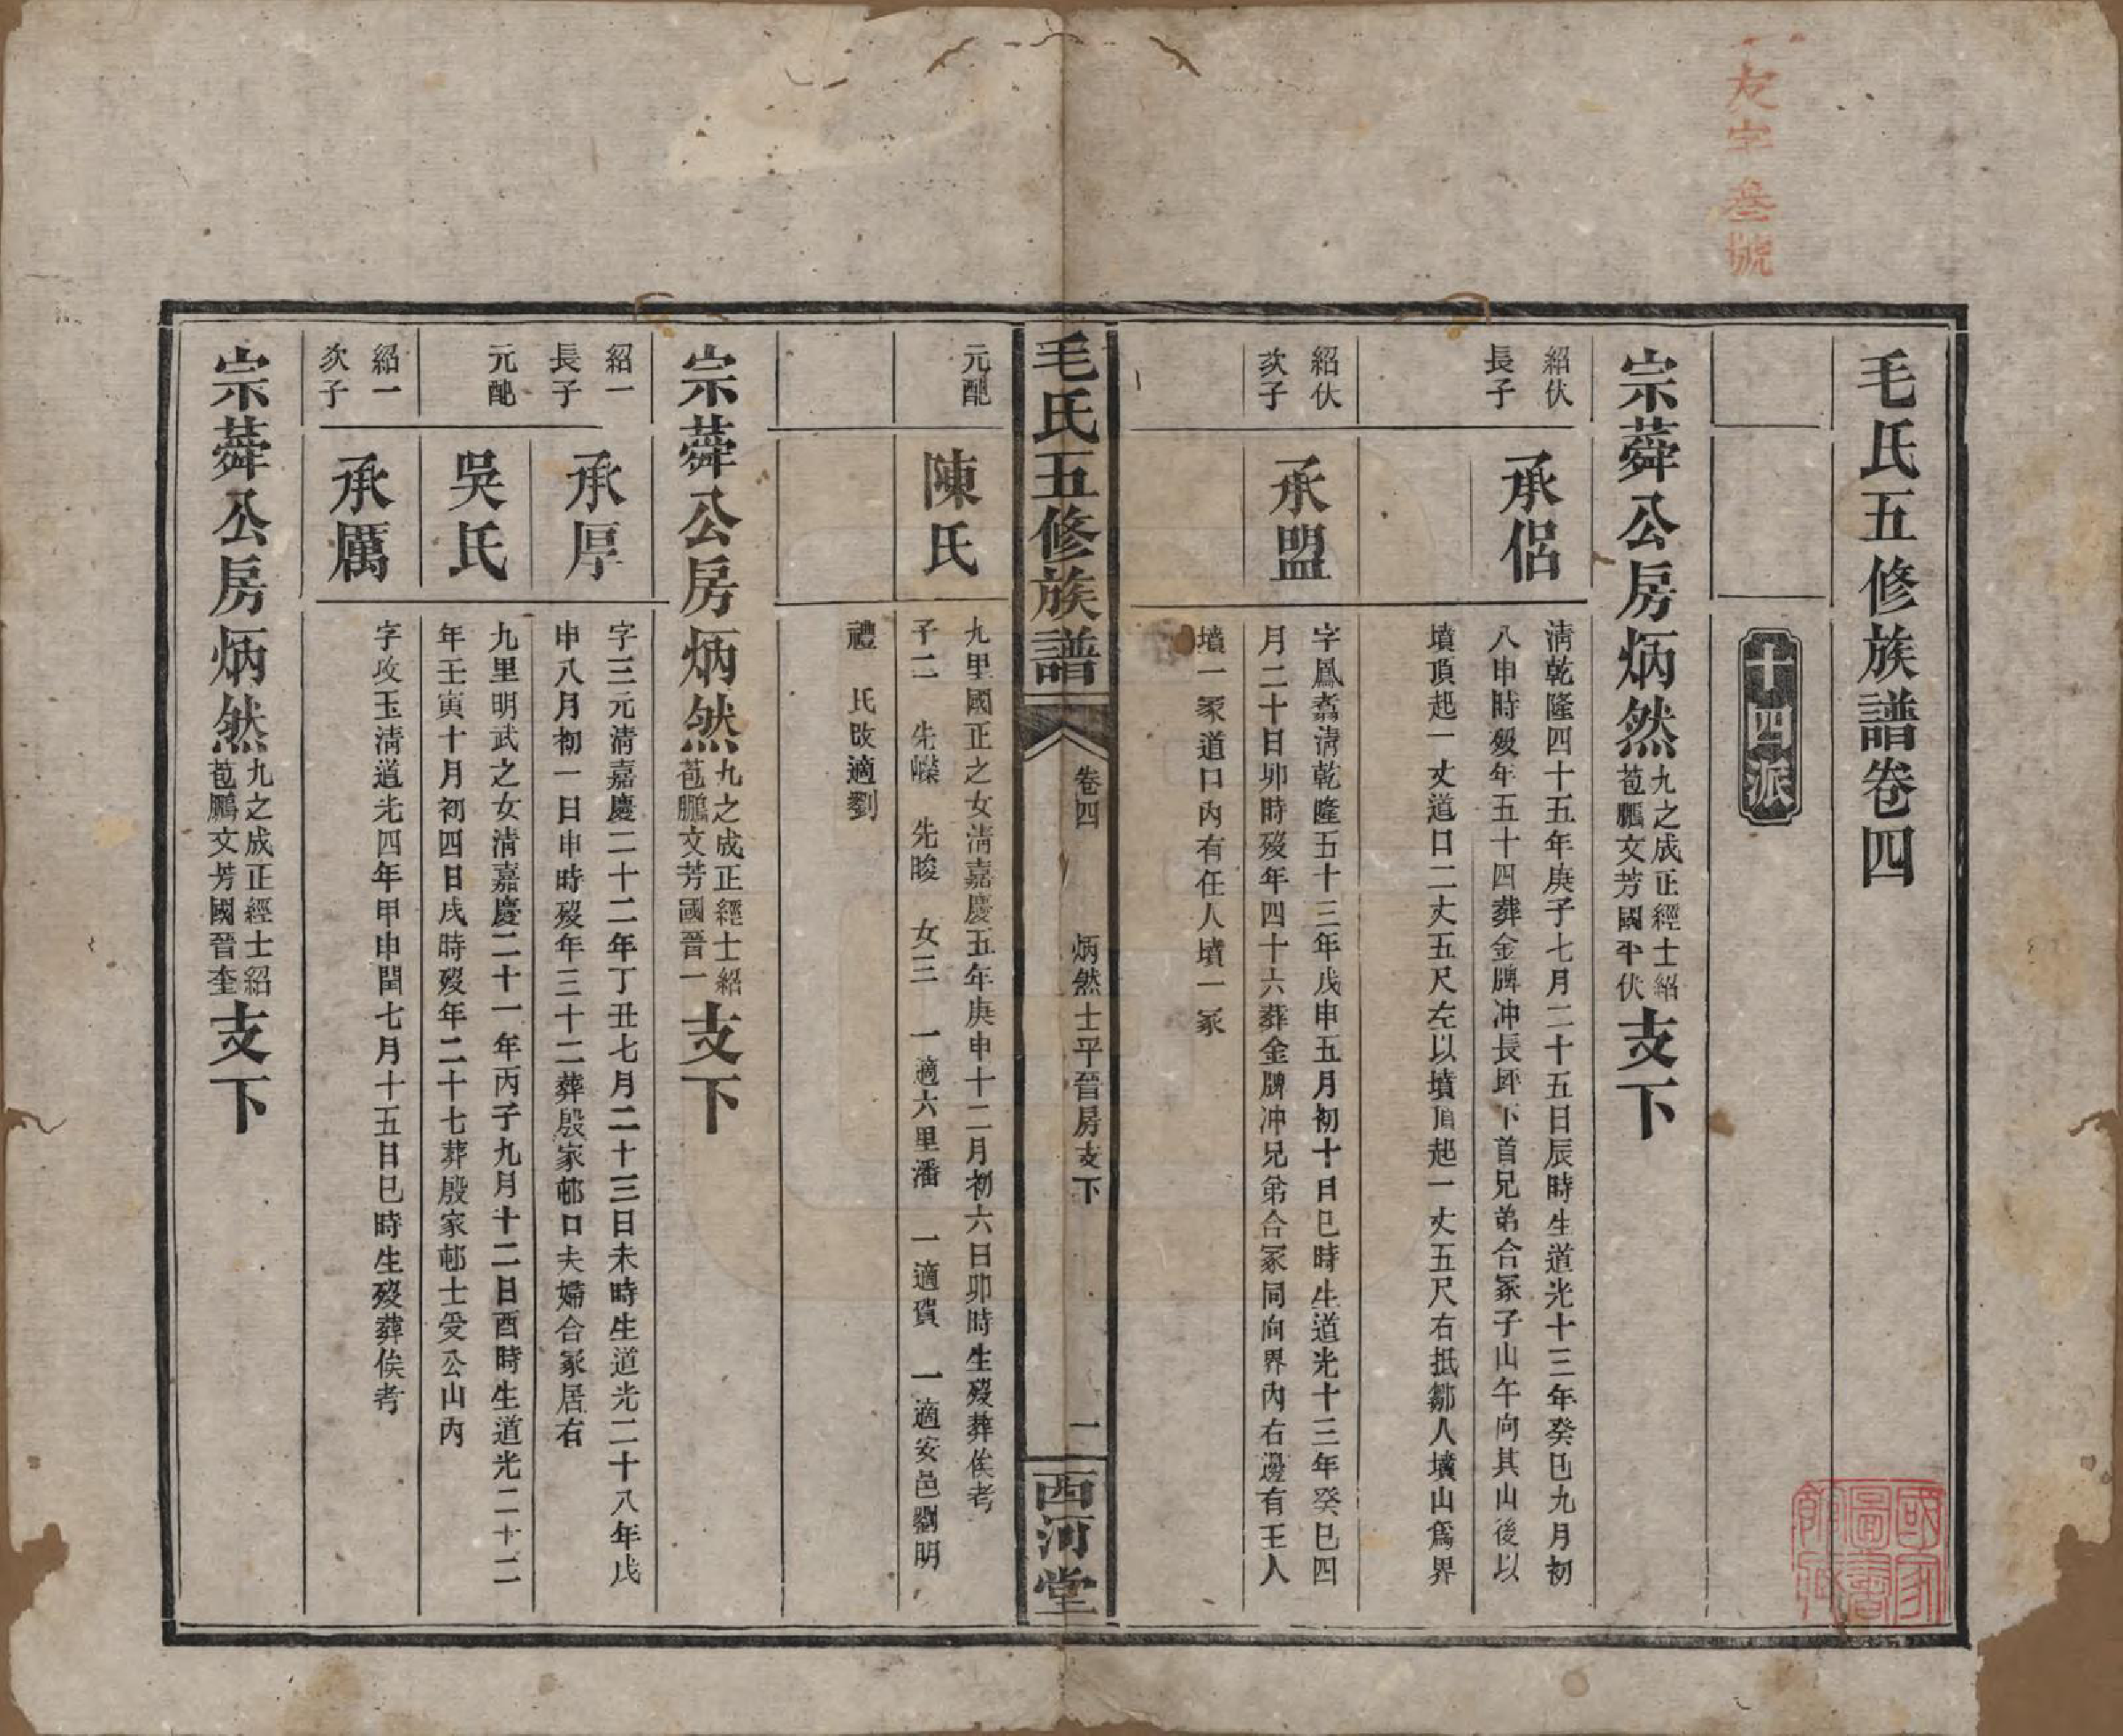 友字叁號
毛氏五修族譜卷四
十四派
宗蕣公房炳然九之成正經士紹
苞鵬文芳國平伏支下
紹伏
長子
承侶
淸乾隆四十五年庚子七月二十五日辰時生道光十三年癸巳九月初
八申時歿年五十四葬金牌冲長坪下首兄弟合冢子山午向其山後以
墳頂起一丈道口二丈五尺左以墳頂起一丈五尺右抵鄒人墳山爲界
紹伏
次子
承盟
字鳳翥淸乾隆五十三年戊申五月初十日巳時生道光十三年癸巳四
月二十日卯時歿年四十六葬金牌冲兄弟合冢同向界內右邊有王人
墳一冢道口內有任人墳一冢
毛氏五修族譜
卷四
炳然士平晉房支下
一
西河堂
元配
陳氏
九里國正之女淸嘉慶五年庚申十二月初六日卯時生歿葬俟考
子二 先嶫 先晙 女三 一適六里潘 一適賀 一適安邑劉明
禮 氏改適劉
宗蕣公房炳然九之成正經士紹
苞鵬文芳國晉一支下
紹一
長子
承厚
字三元淸嘉慶二十二年丁丑七月二十三日未時生道光二十八年戊
申八月初一日申時歿年三十二葬殷家邨口夫婦合冢居右
元配
吳氏
九里明武之女淸嘉慶二十一年丙子九月十二日酉時生道光二十二
年壬寅十月初四日戌時歿年二十七葬殷家邨士受公山內
紹一
次子
承厲
字攻玉淸道光四年甲申閏七月十五日巳時生歿葬俟考
宗蕣公房炳然九之成正經士紹
苞鵬文芳國晉奎支下
國家
圖書
館藏